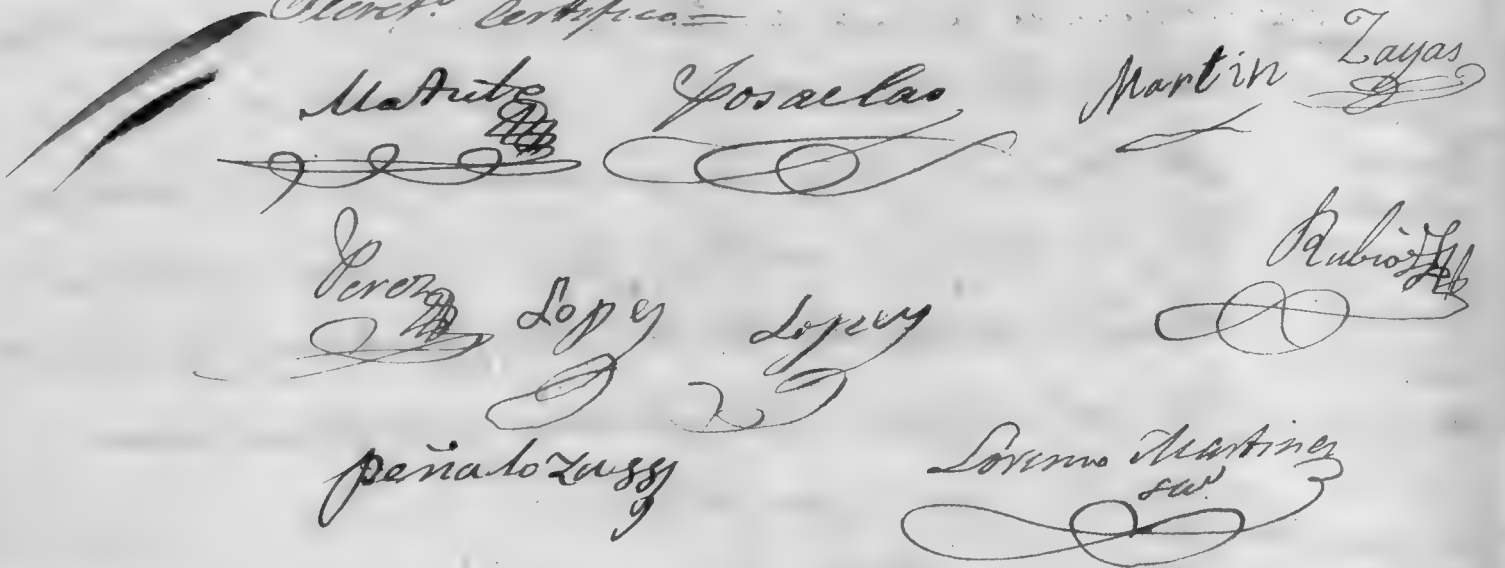 Secret.º Certifico.=
Matute Posaelas Martin Zayas
Perez Lopez Lopez Rubio
peñaloza
Lorenzo Martinez